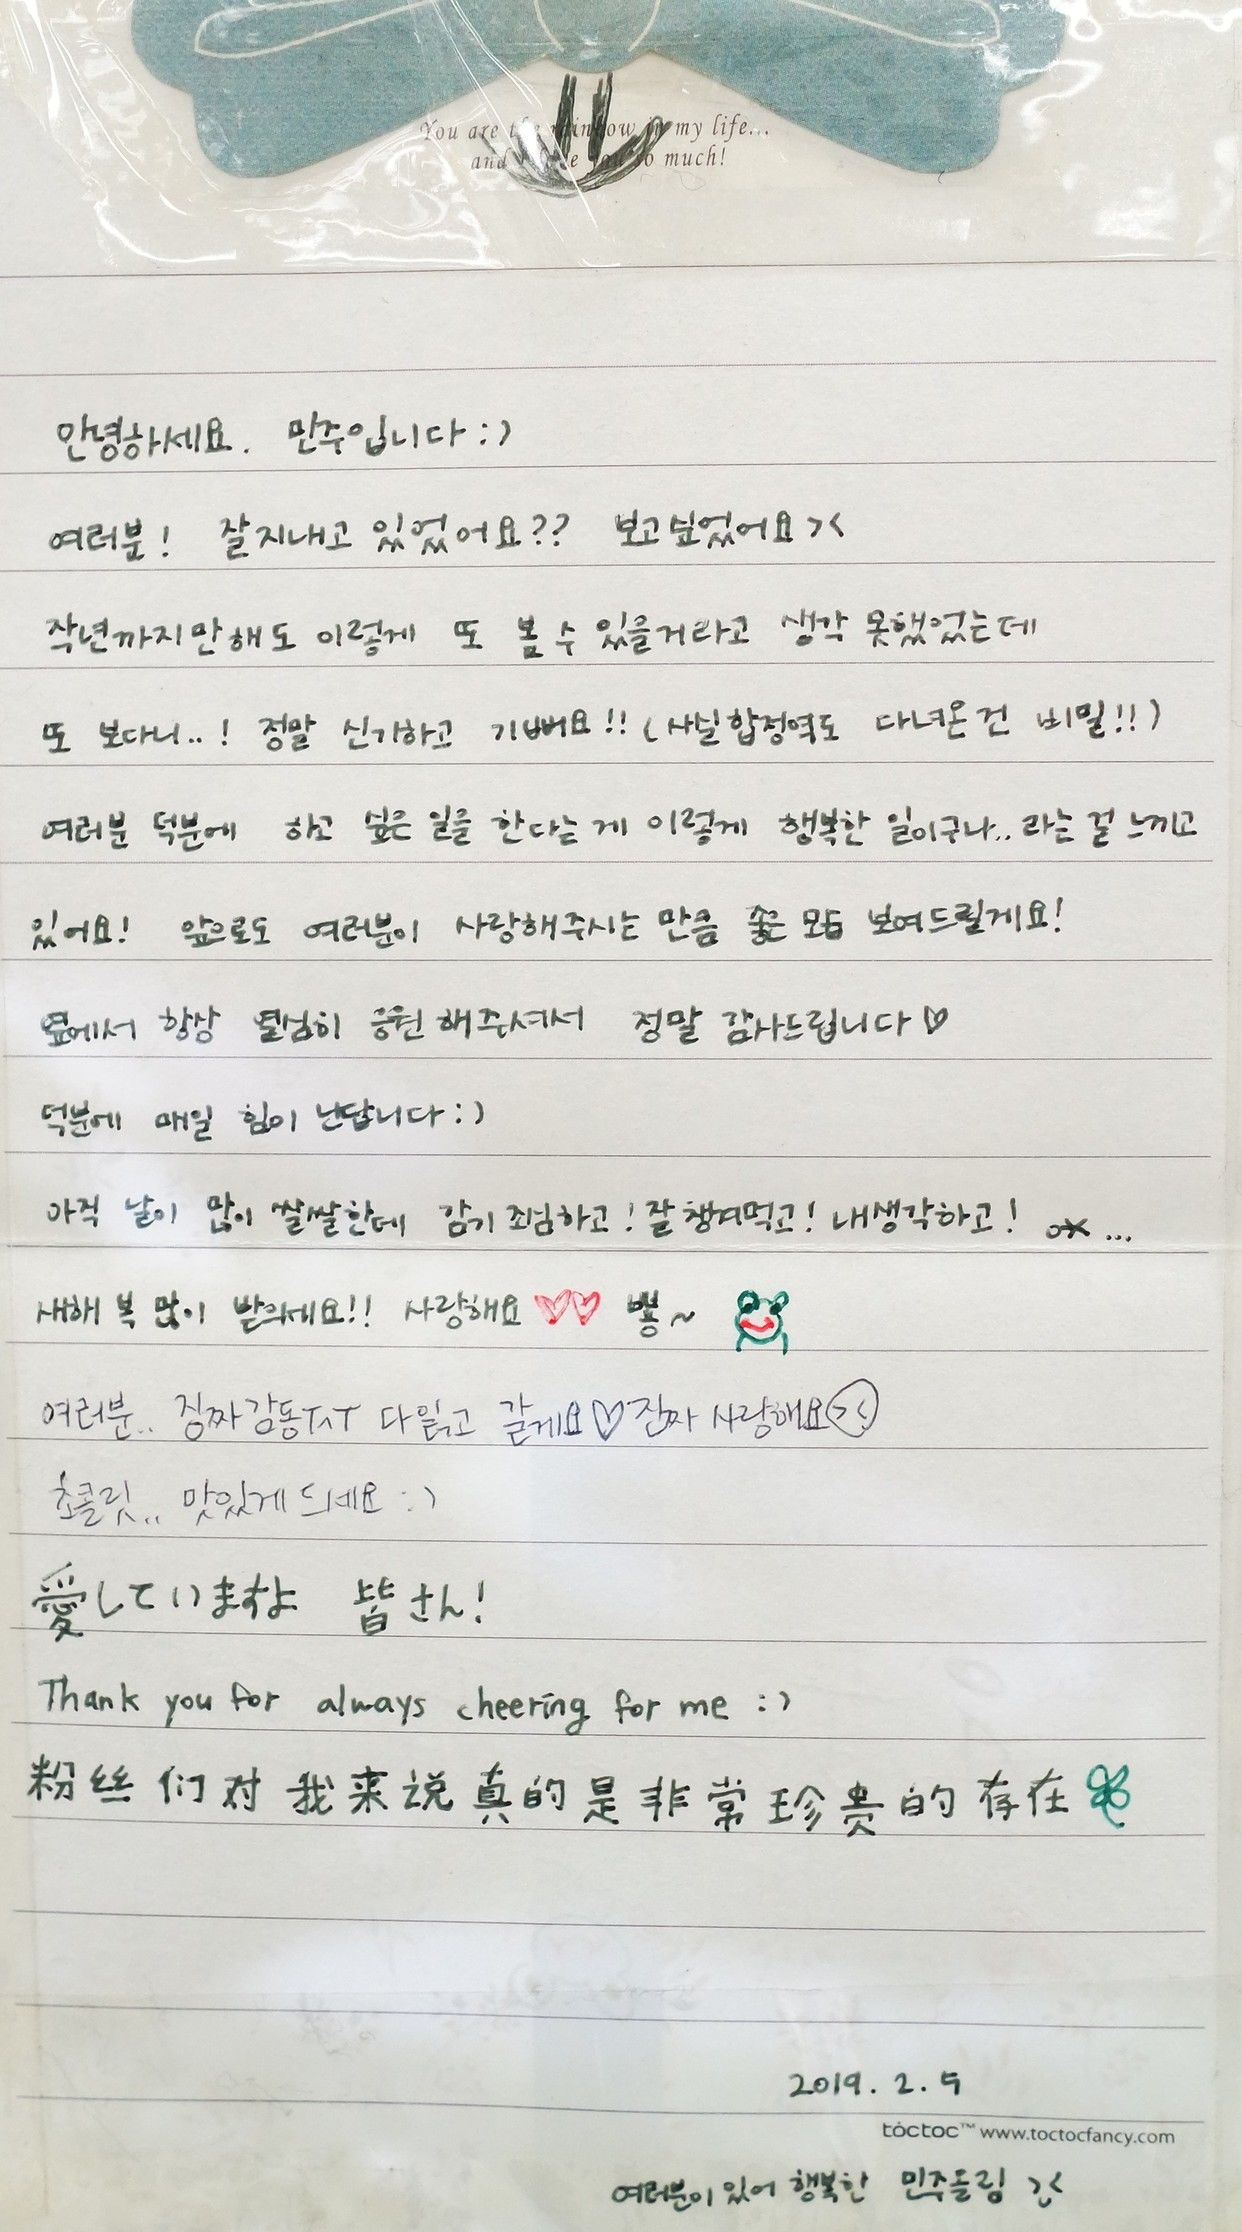 You are the rainbow in my life...
and I love you so much!
안녕하세요. 민주입니다 :)
여러분! 잘지내고 있었어요?? 보고싶었어요 ><
작년까지만해도 이렇게 또 볼 수 있을거라고 생각 못했었는데
또 보다니..! 정말 신기하고 기뻐요!! (사실합정역도 다녀온건 비밀!!)
여러분 덕분에 하고 싶은 일을 한다는게 이렇게 행복한 일이구나.. 라는 걸 느끼고
있어요! 앞으로도 여러분이 사랑해주시는 만큼 좋은 모습 보여드릴게요!
옆에서 항상 열심히 응원해주셔서 정말 감사드립니다♡
덕분에 매일 힘이 난답니다 :)
아직 날이 많이 쌀쌀한데 감기 조심하고! 잘챙겨먹고! 내생각하고! ...
새해 복 많이 받으세요!! 사랑해요♡♡ 뿅~
여러분.. 징짜감동TㅅT 다읽고 갈게요♡ 진짜 사랑해요
초콜릿.. 맛있게드세요 :)
愛していますよ 皆さん!
Thank you for always cheering for me :)
粉丝们对我来说真的是非常珍贵的存在
2019. 2. 5
toctoc™ www.toctocfancy.com
여러분이 있어 행복한 민주드림 ><